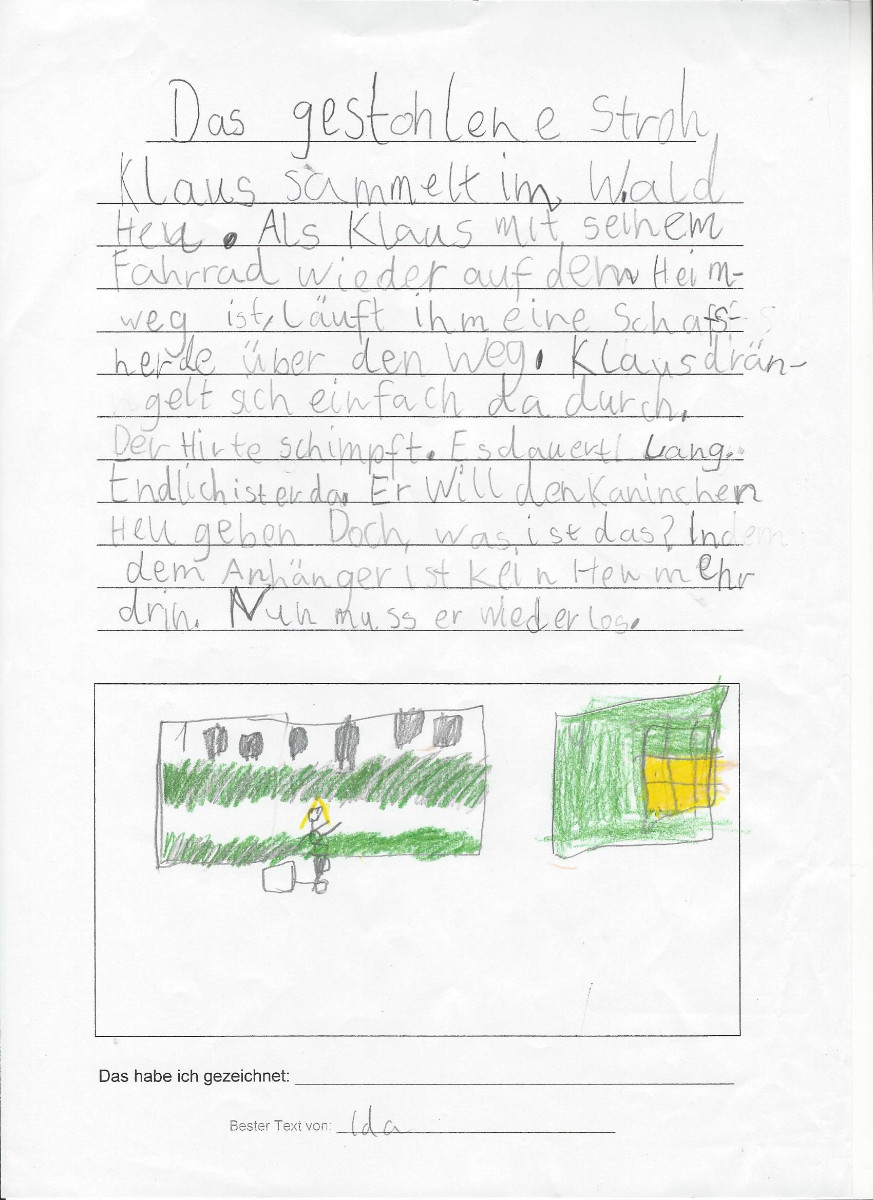 Das gestohlene Stroh
Klaus sammelt im Wald
Heu. Als Klaus mit seinem
Fahrrad wieder auf dem Heim-
weg ist, läuft ihm eine Schafs-
herde über den Weg. Klaus drän-
gelt sich einfach da durch.
Der Hirte schimpft. Es dauert Lang.
Endlich ist er da. Er Will den Kaninchen
Heu geben Doch, was ist das? In
dem Anhänger ist kein Heu mehr
drin. Nun muss er wieder los.
Das habe ich gezeichnet:
Bester Text von: Ida